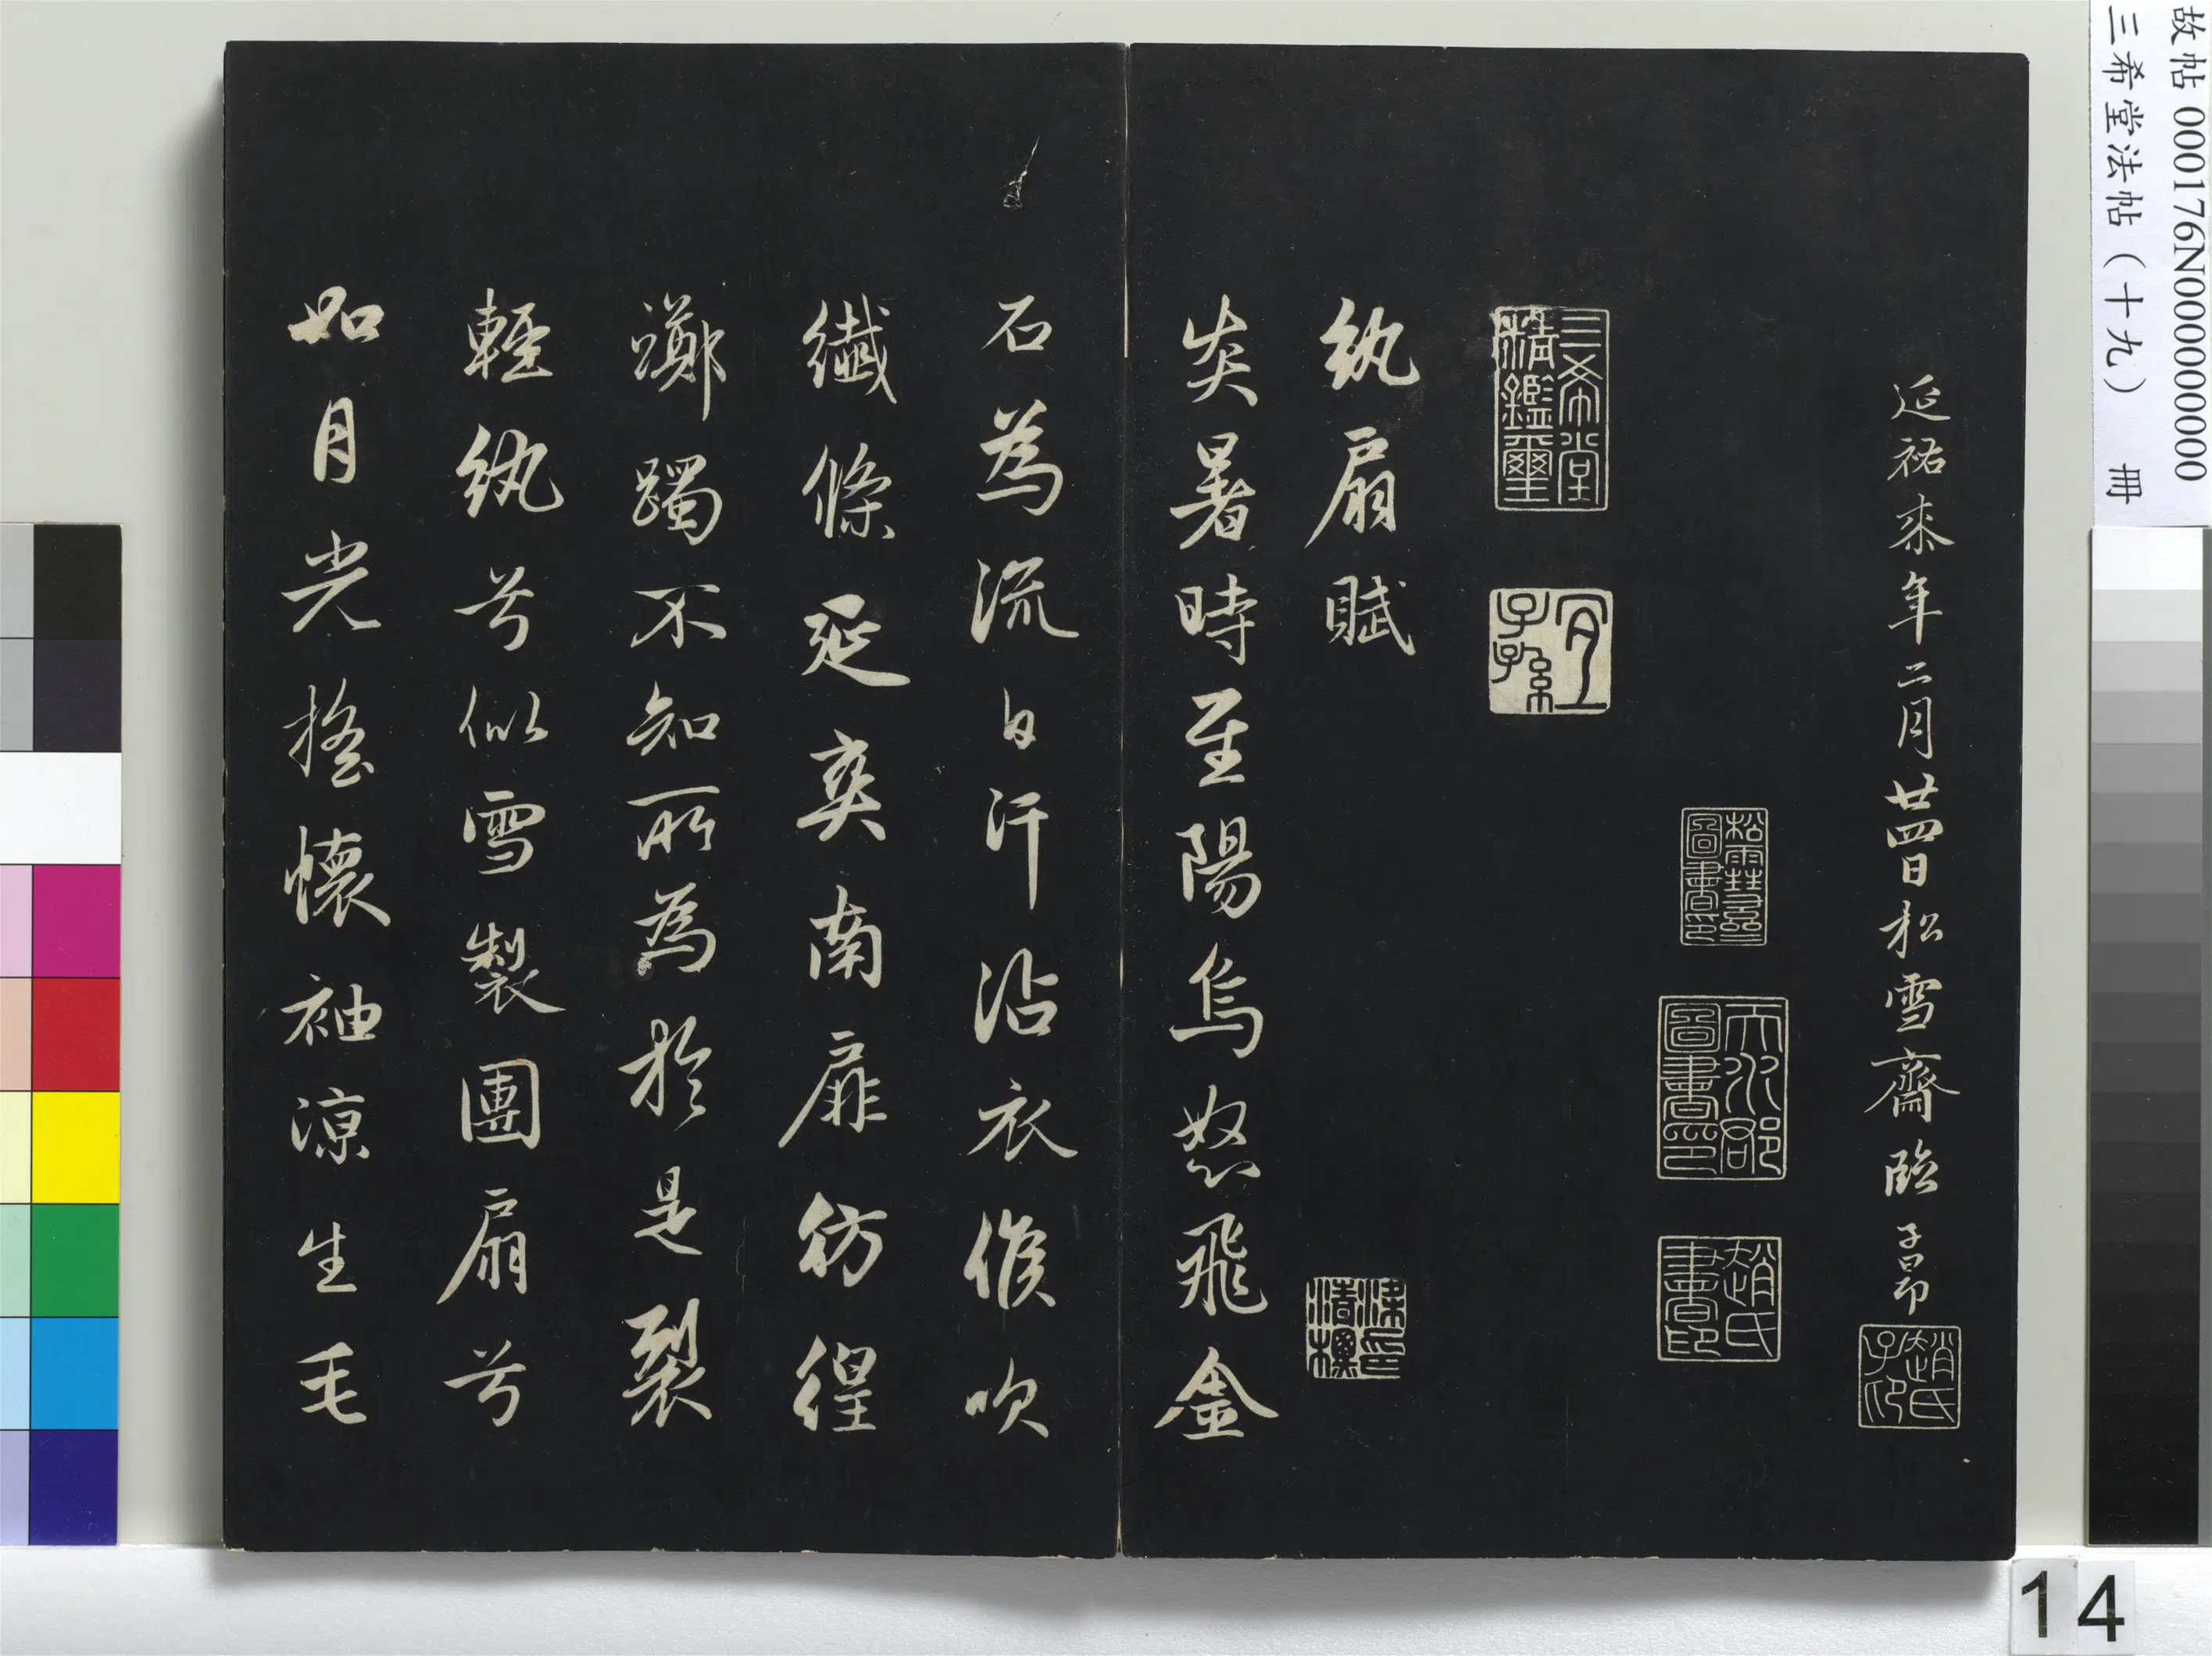 故帖 000176N000000000
三希堂法帖（十九） 冊
延祐柒年二月廿四日松雪齋臨 子昂
趙氏子印
松雪齋圖書印
天水郡圖書印
趙氏書印
三希堂精鑑璽
宜子孫
紈扇賦
炎暑時至陽烏怒飛金
石為流白汗沾衣倏吹
纖絛延奕南扉彷徨
躑躅不知所為於是裂
輕紈兮似雪製團扇兮
如月光搖懷袖涼生毛
14